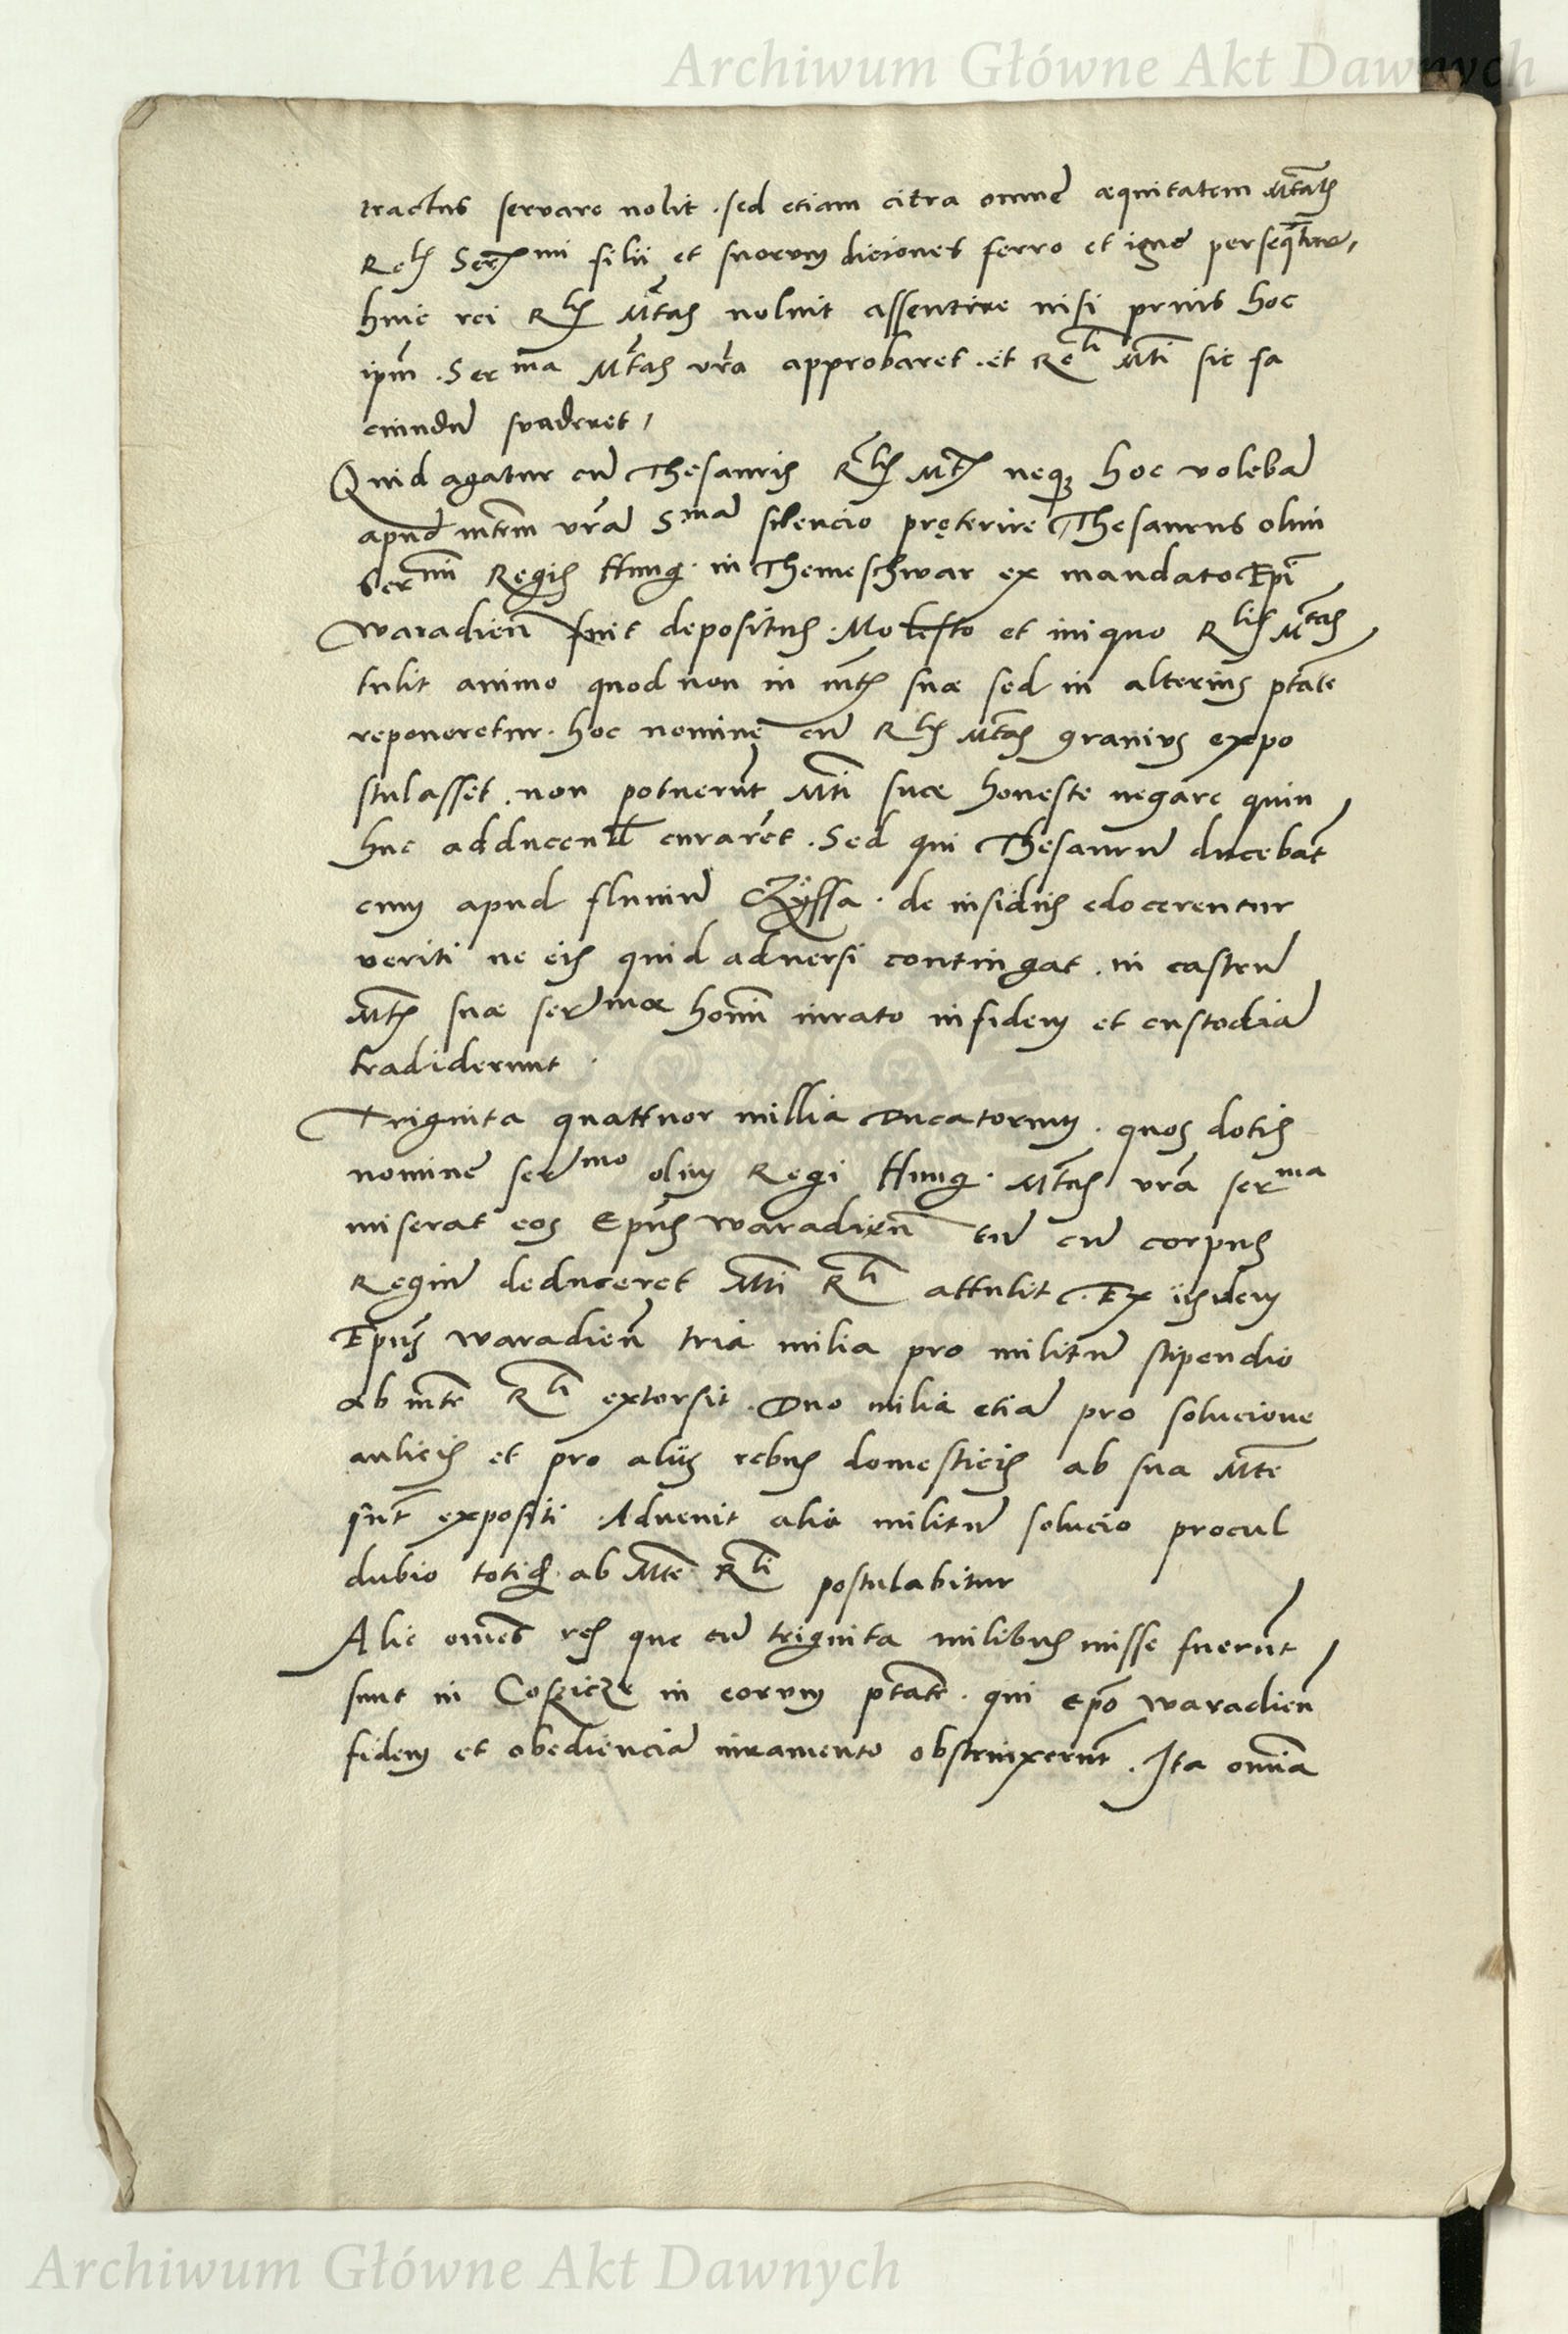 Archiwum Główne Akt Dawnych
tractus servare nolit . sed etiam citra omnē æquitatem Mtatis
Relis Ser mi filii et suorum diciones ferro et igne perseqūtur,
huic rei Rlis Mtas noluit assentire nisi prius hoc
ipm̄ . Ser ma Mtas vr̄a approbaret . et Reli Mti sic fa
ciundū suaderet ,
Quid agatur cū Thesauris Rlis Mtis neq3 hoc volebā
apud mtem vr̄ā Smā silencio pręterire Thesaurus olim
Ser mi Regis Hung . in Themeschwar ex mandato Epi
Waradien̄ fuit depositus . Molesto et iniquo Rlis Mtas
tulit animo quod non in mtis suæ sed in alterius ptāte
reponeretur . hoc nominē cū Rlis Mtas gravius expo
stulasset . non potuerūt Mti suæ honeste negare quin
huc adducend curarēt . Sed qui Thesaurū ducebāt
cum apud fluviū Czÿssa . de insidiis edocerentur
veriti ne eis quid adversi contingat . in castrū
Mtis suæ sermæ homī iurato in fidem et custodiā
tradiderunt .
Triginta quattuor millia Ducatorum . quos dotis
nominē sermo olim Regi Hung . Mtas vr̄a serma
miserat eos Epūs Waradien̄ tū cū corpus
Regiū deduceret Mti Rli attulit . Ex iisdem
Epūs Waradien̄ tria milia pro militū stipendio
ab mte Rli extorsit . Duo milia etiā pro solucione
aulicis et pro aliis rebus domesticis ab sua Mte
sūt expositi . Advenit alia militū solucio procul
dubio totid . ab Mte Rli postulabitur
Alie omēs res que cū triginta milibus misse fuerūt
sunt in Coszicze in eorum ptāte . qui Epō Waradien̄
fidem et obedienciā iuramento obstrinxerūt . Ita omīa
Archiwum Główne Akt Dawnych